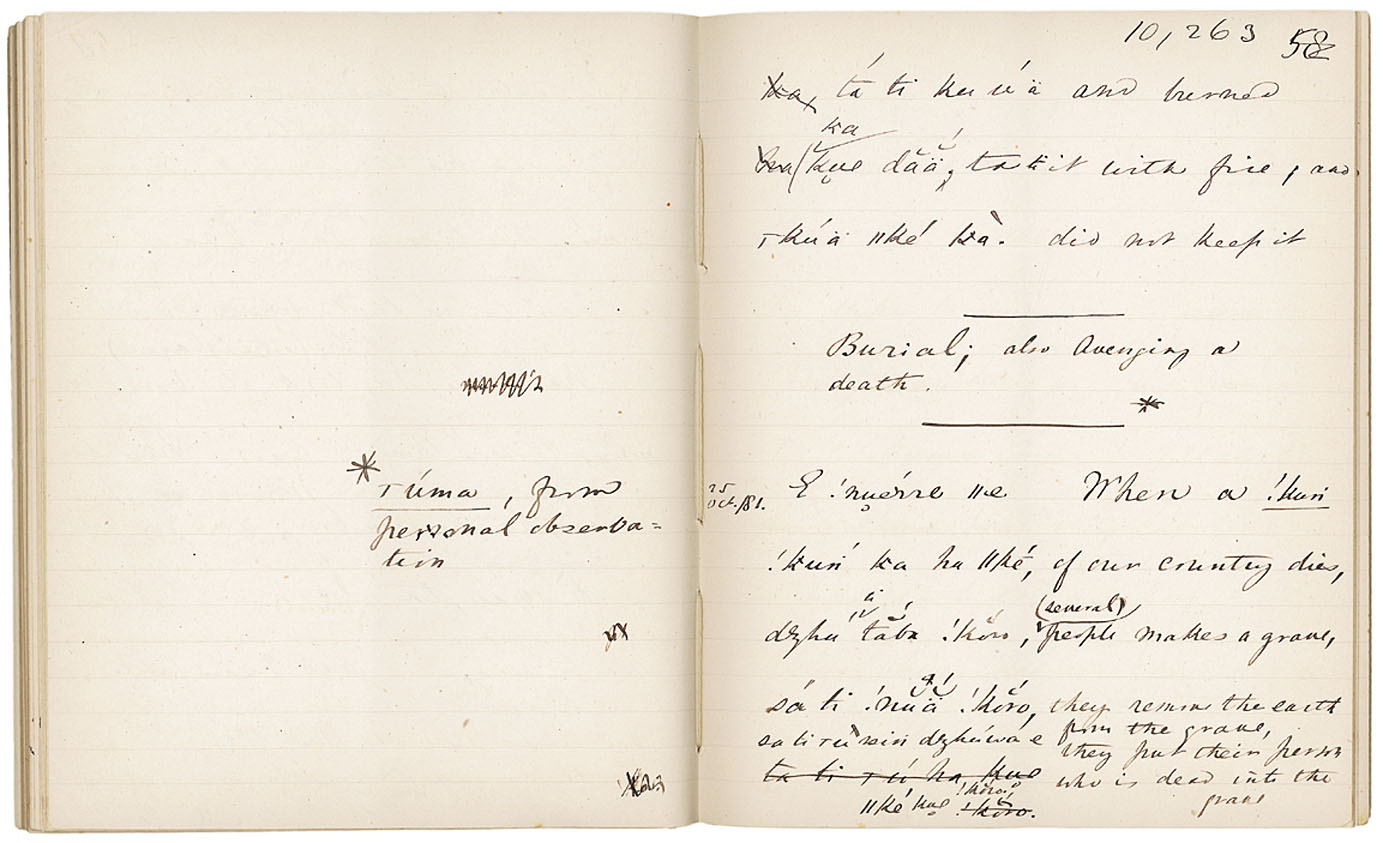 *
ꞇúma, from
personal observa=
tion
10,263 58
tá ti ku úä and burned
ka
kṷe dăä, ta ti it with fire, and
ꞇkúä ǁké ka. did not keep it
Burial; also Avenging a
death.
*
25 Oct./81. E !nuérre ǁe When a !kuṅ
!kuṅ ka ha ǁké, of our country dies,
(several)
dzhu tába !kŏro, people makes a grave,
sá ti !nuä !kŏro, they remove the earth
from the grave,
sa ti ꞇú siṅ dzhúwá e they put their person
ta ti ꞇú ha kue who is dead into the
ǁké kue !kŏro. grave